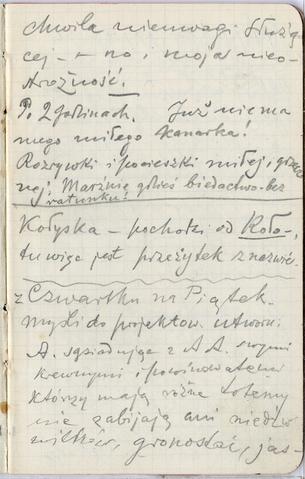 chwila nieuwagi służą
cej – + no, i moja nieo-
strożność.
Po 2 godzinach. Już nie ma
mego miłego kanarka!
Rozrywki i pocieszki miłej,
nej! Marznie gdzieś biedactwo bez
ratunku!
Kołyska – pochodzi od Koło-
tu więc jest przeżytek z nazwie.
z Czwartku na Piątek
myśli do projektow. utworu:
A. sąsiadując z A A. swymi
krewnymi i powinowatemi
którzy mają różne totemy
nie zabijają ani niedźw
wilków, gronostai, jas-